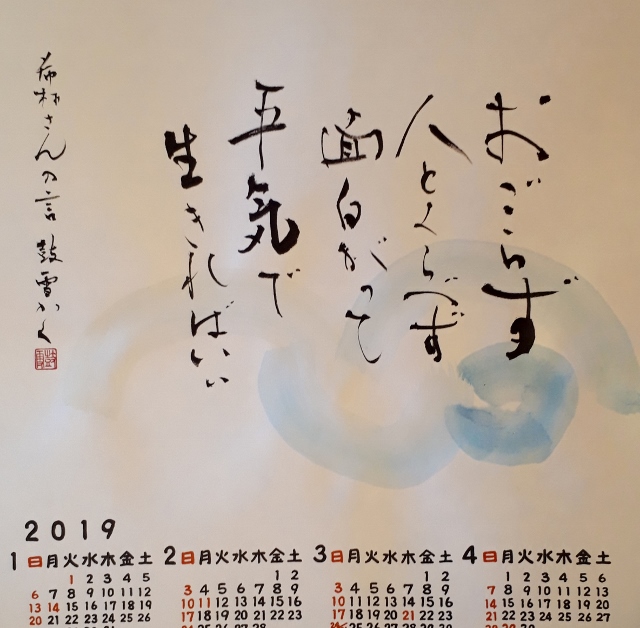 おごらず
人とくらべず
面白がって
平気で
生きればいい
希林さんの言 鼓雪かく
2019
1 日月火水木金土 2 日月火水木金土 3 日月火水木金土 4 日月火水木金土
1 2 3 4 5 1 2 1 2 1 2 3 4 5 6
6 7 8 9 10 11 12 3 4 5 6 7 8 9 3 4 5 6 7 8 9 7 8 9 10 11 12 13
13 14 15 16 17 18 19 10 11 12 13 14 15 16 10 11 12 13 14 15 16 14 15 16 17 18 19 20
20 21 22 23 24 25 26 17 18 19 20 21 22 23 17 18 19 20 21 22 23 21 22 23 24 25 26 27